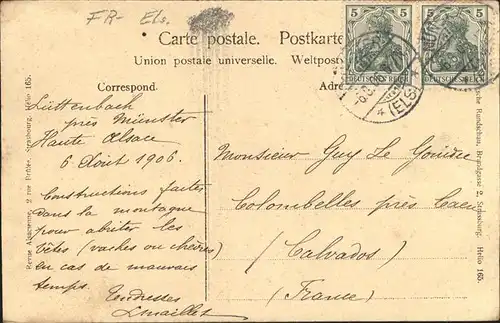 FR- Els.
Carte postale. Postkarte
Union postale universelle. Weltpost
Correspond. Adre
5 5
DEUTSCHES REICH DEUTSCHES REICH
(ELS)
Luttenbach
près Münster
Haute Alsace
6 Août 1906.
Constructions faites
dans la montagne
pour abriter les
bêtes (vaches ou chèvres)
en cas de mauvais
temps.
Tendresses
Monsieur Guy Le
Colombelles près Caen
(Calvados)
(France)
Revue Alsacienne, 2 rue Brûlée, Strasbourg. Hélio 165.
Rundschau, Brandgasse 2, Strassburg. Hélio 165.